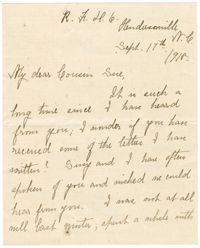 R. F. D. 6.
Hendersonville
N. C.
Sept. 15th
1918.
My dear Cousin Sue,
It is such a
long time since I have heard
from you, I wonder if you have
received some of the letters I have
written? Susy and I have often
spoken of you and wished we could
hear from you. I was not at all
well last winter, spent a while with